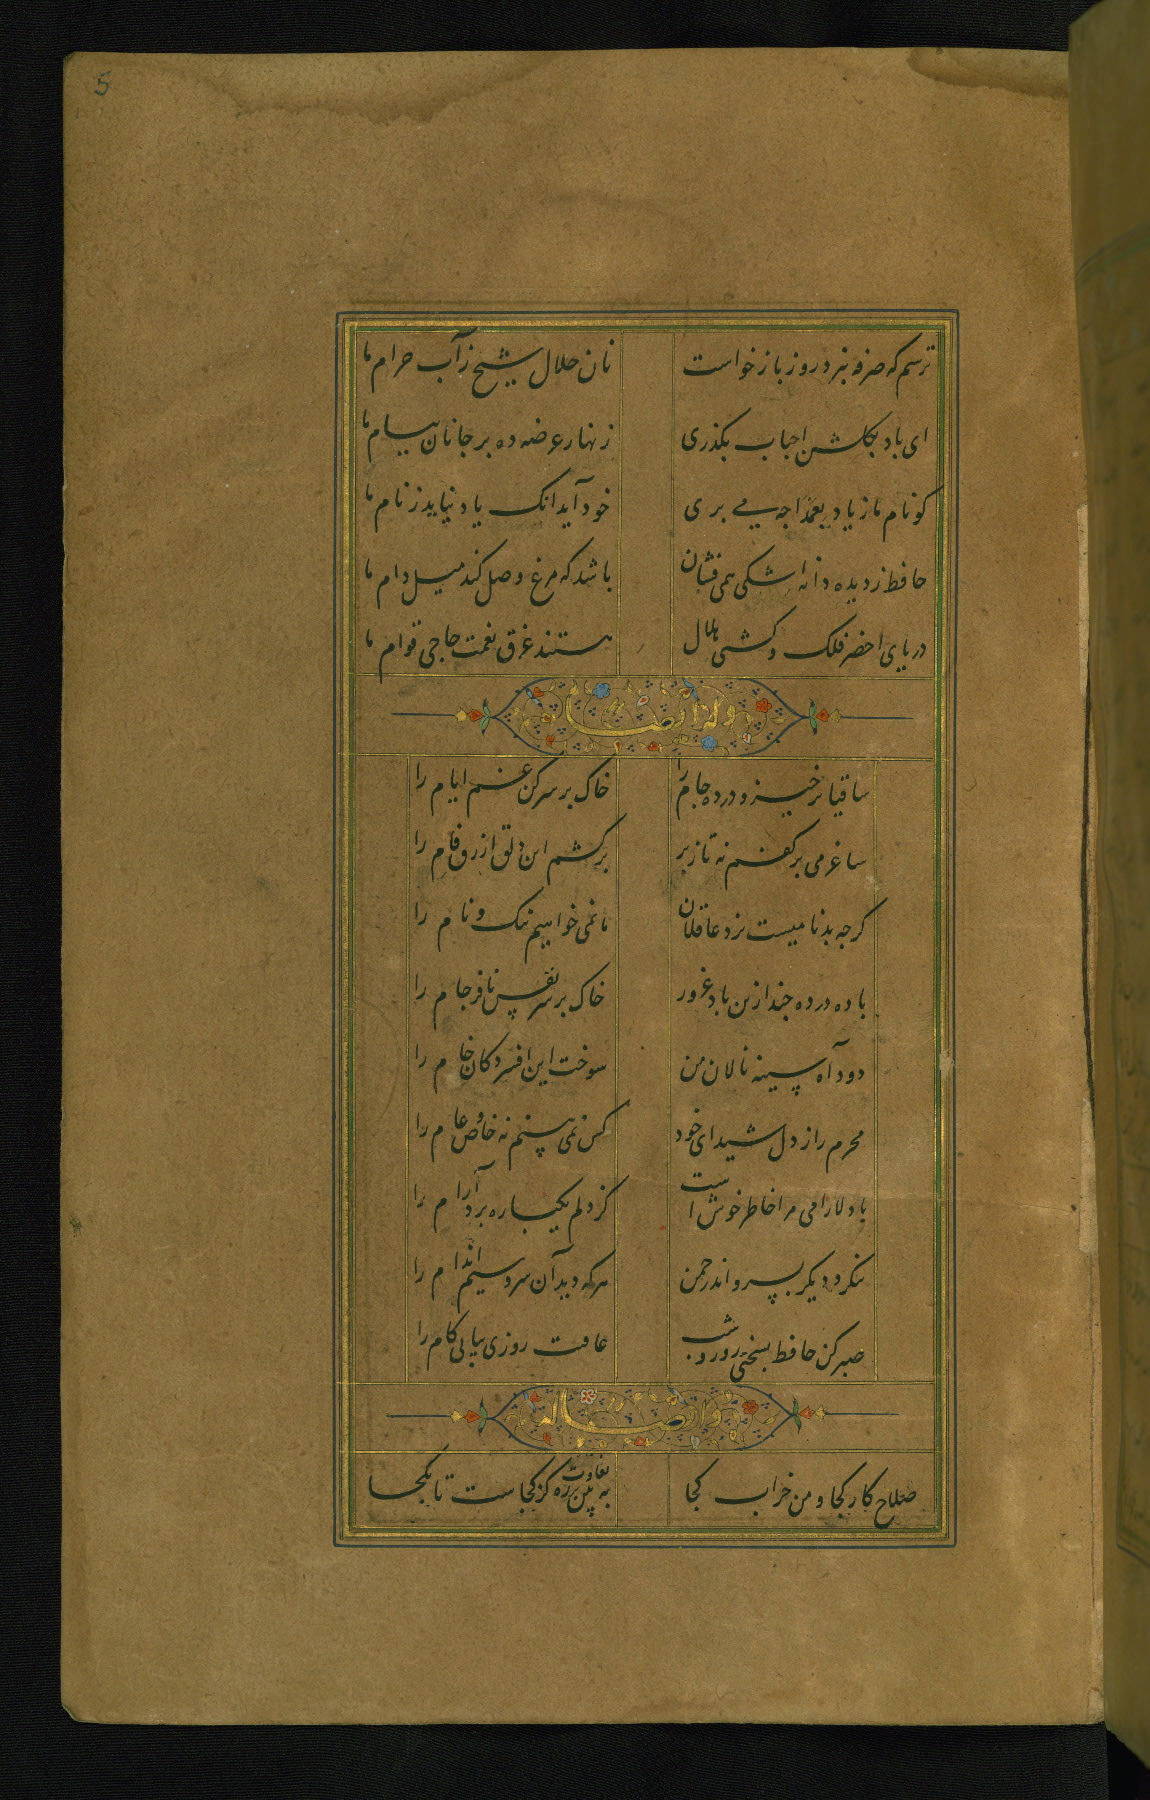 5
ترسم که صرفه نبرد روز بازخواست نان حلال شیخ زآب حرام ما
ای باد بکلشن احباب بکذری زنهار عرضه ده بر جانان پیام ما
کو نام ما زیاد بعمدا چه می بری خود آید آنک یاد نیاید ز نام ما
حافظ ز دیده دانه اشکی همی فشان باشد که مرغ وصل کند میل دام ما
دریای اخضر فلک و کشتی هلال هستند غرق نعمت حاجی قوام ما
وله ایضا
ساقیا برخیز و درده جام را خاک بر سر کن غم ایام را
ساغر می بر کفم نه تا ز بر برکشم این دلق ازرق فام را
کرچه بدنامیست نزد عاقلان ما نمی خواهیم ننک و نام را
باده درده چند ازین باد غرور خاک بر سر نفس نافرجام را
دود آه سینه نالان من سوخت این افسردکان خام را
محرم راز دل شیدای خود کس نمی بینم ز خاص و عام را
با دلارامی مرا خاطر خوش است کز دلم یکباره برد آرام را
ننکرد دیکر بسرو اندر چمن هرکه دید آن سرو سیم اندام را
صبر کن حافظ بسختی روز و شب عاقبت روزی بیابی کام را
وایضا له
صلاح کار کجا و من خراب کجا به بین تفاوت ره کز کجاست تا بکجا